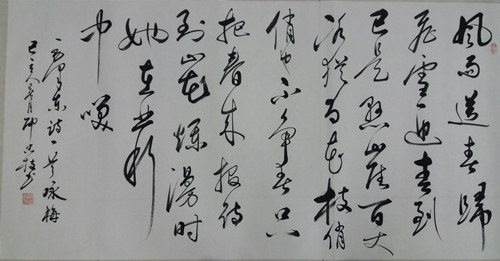 风雨送春归
飞雪迎春到
已是悬崖百丈
冰犹有花枝俏
俏也不争春只
把春来报待
到山花烂漫时
她在丛中
中笑
毛泽东诗一首咏梅